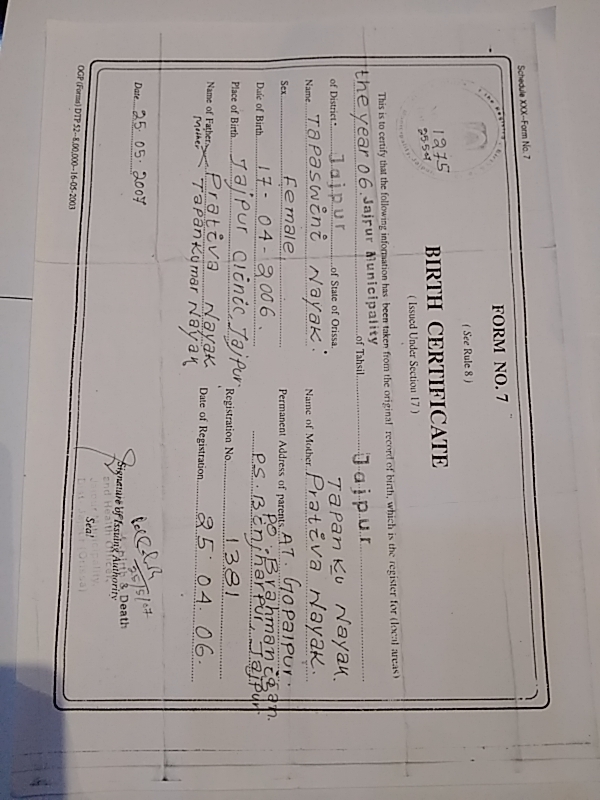 Schedule XXX—Form No. 7
1275
25 5 07
FORM NO. 7
( See Rule 8 )
BIRTH CERTIFICATE
( Issued Under Section 17 )
This is to certify that the following information has been taken from the original record of birth, which is the register for (local areas)
the year 06. Jajpur Municipality of Tahsil Jajpur
of District Jajpur of State of Orissa.
Name TAPASWINI NAYAK. Name of Mother Prativa Nayak.
TAPAN KU NAYAK.
Sex Female Permanent Address of parents AT. Gopalpur.
PO. Brahmanigan.
Date of Birth 17-04-2006. PS. Binjharpur, Jajpur
Place of Birth Jajpur Clinic, Jajpur. Registration No. 1381
Name of Father Prativa Nayak Date of Registration 25.04.06.
Mother Tapan Kumar Nayak
Date 25 05 2007
25/5/07
Signature of Issuing Authority
& Death
Seal
OGP (Forms) DTP 52—8,00,000—16-05-2003